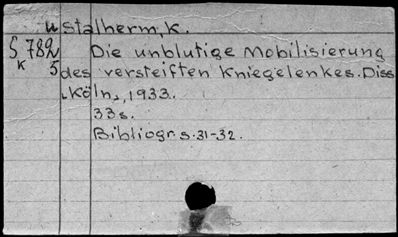 ustalherm, K.
S 782 Die unblutige Mobilisierung
K 5 des versteiften Kniegelenkes. Diss
. Köln, 1933.
33 s.
Bibliogr. s. 31-32.